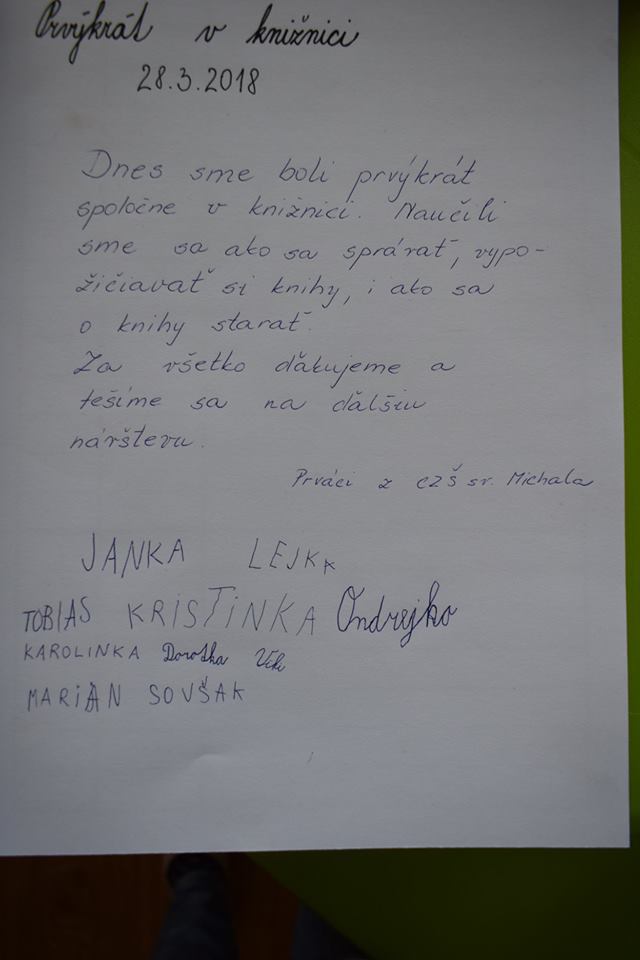 Prvýkrát v knižnici
28.3.2018
Dnes sme boli prvýkrát
spoločne v knižnici. Naučili
sme sa ako sa správať, vypo-
žičiavať si knihy, i ako sa
o knihy starať.
Za všetko ďakujeme a
tešíme sa na ďalšiu
návštevu.
Prváci z CZŠ sv. Michala
JANKA LEJKA
TOBIAS KRISTINKA Ondrejko
KAROLINKA Dorotka
MARIÁN SOVŠAK